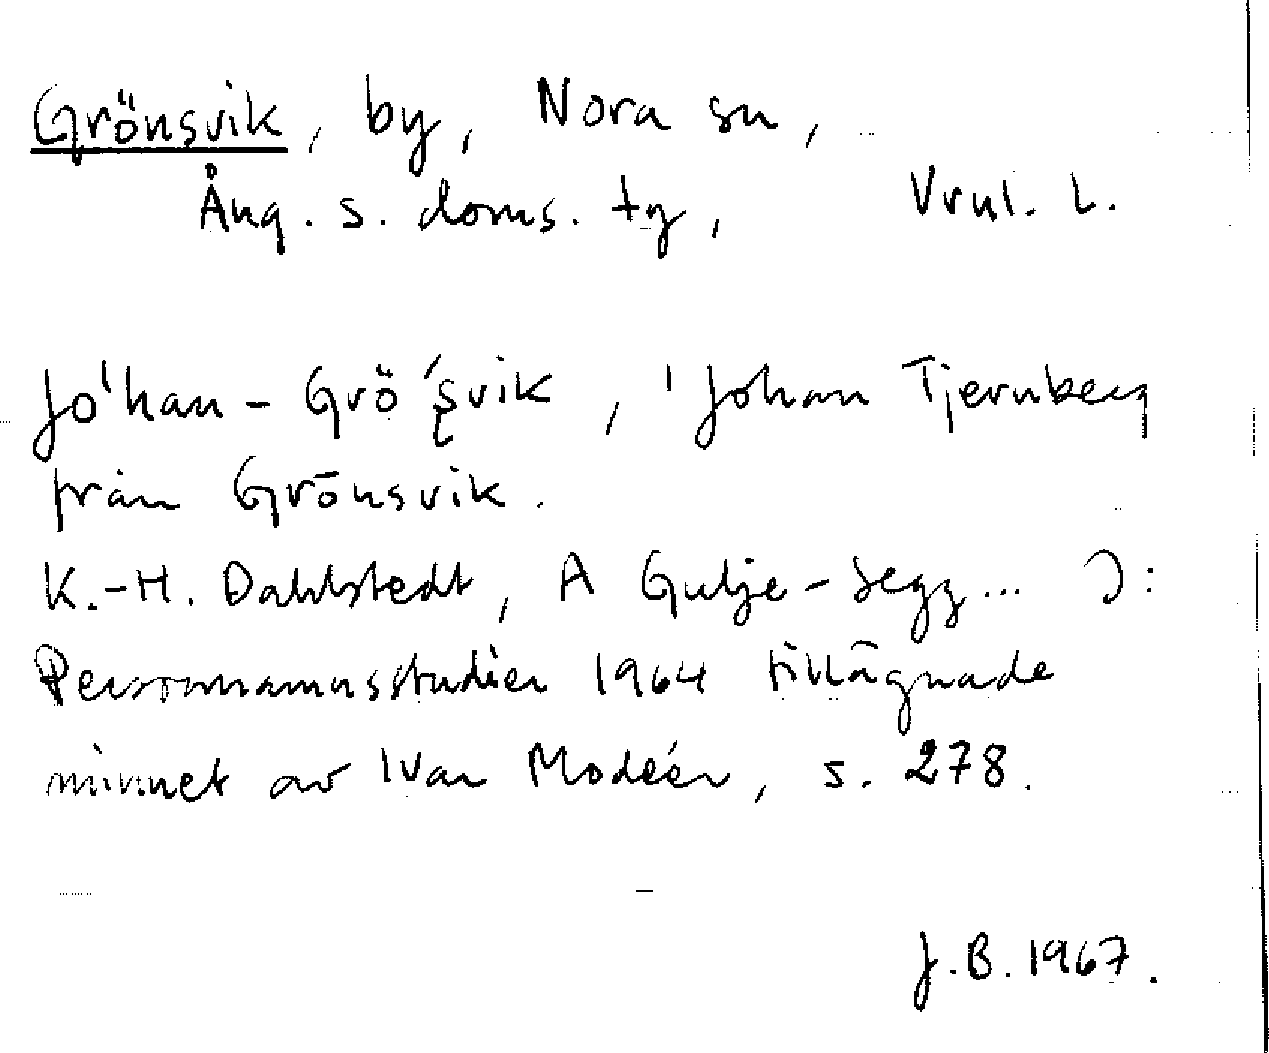 Grönsvik, by, Nora sn,
Ång. s. doms. tg, Vrnl. L.
Jo'han-Grö´s̨vik, 'Johan Tjernberg
från Grönsvik.
K.-H. Dahlstedt, A Gulje-Segg... I:
Personnamnsstudier 1964 tillägnade
minnet av Ivar Modéer, s. 278.
J.B. 1967.